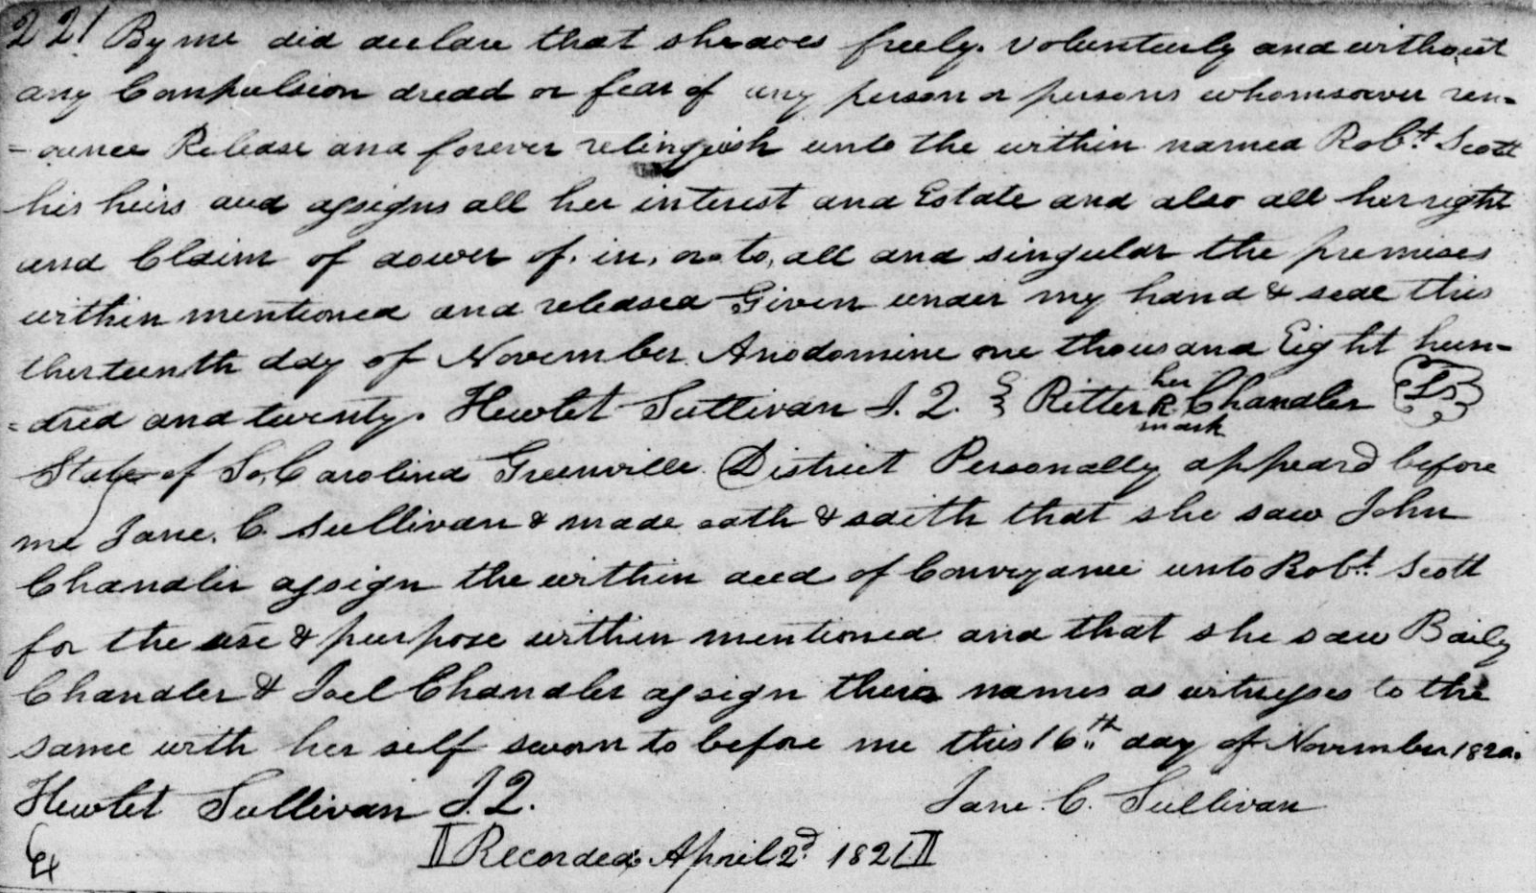 221 By me did declare that she does freely. voluntarily and without
any Compulsion dread or fear of any person or persons whomsoever ren=
=ounce Release and forever relinquish unto the within named Robt. Scott
his heirs and assigns all her interest and Estate and also all her right
and Claim of dower of. in. or to, all and singular the premises
within mentioned and released Given under my hand & seal this
thirteenth day of November. Anodomine one thousand Eight hun=
=dred and twenty. Hewlet Sullivan J. Q. Ritter her R mark Chandler LS
State of So, Carolina Greenville District Personally appeard before
me Jane. C. Sullivan & made oath & saith that she saw John
Chandler assign the within deed of Conveyance unto Robt. Scott
for the use & purpose within mentioned and that she saw Baily
Chandler & Joel Chandler assign their names as witnesses to the
same with her self sworn to before me this 16th. day of November 1820.
Hewlet Sullivan J. Q. Jane. C. Sullivan
Recorded April 2d. 1821